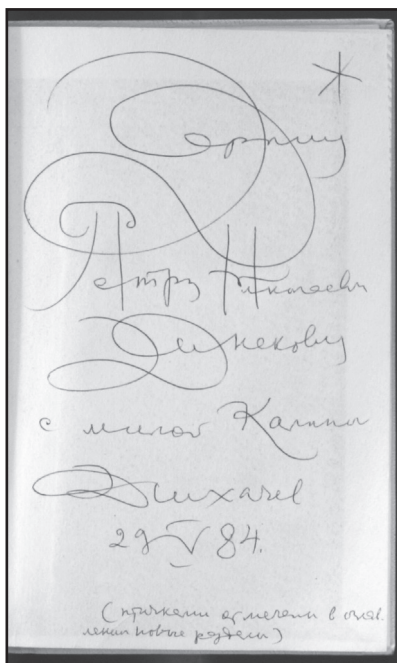 *
Дорогому
Петру Николаевичу
Динекову
с милой Калиной
Д Лихачев
29 V 84.
(птичками отмечены в оглав.
лении новые разделы)